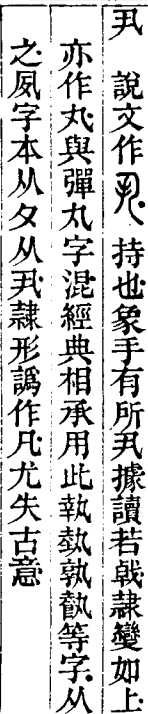 丮 說文作𠃨持也象手有所丮據讀若戟隸變如上
亦作丸與彈丸字混經典相承用此執埶孰㩴等字从
之夙字本从夕从丮隸形譌作凡尤失古意